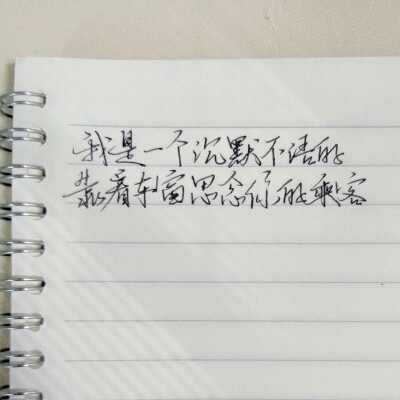 我是一个沉默不语的
靠着车窗思念你的乘客